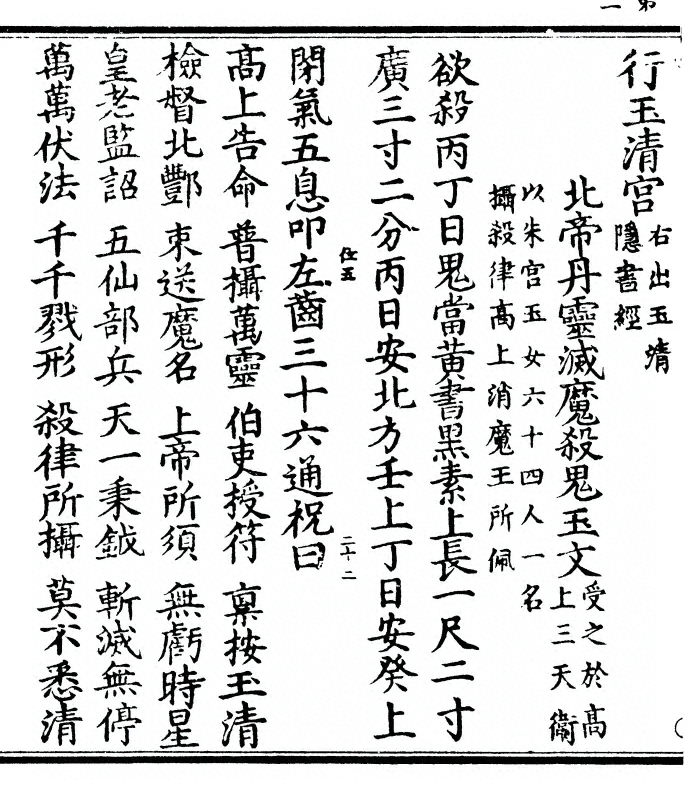 行玉清宮右出玉清
隱書經
北帝丹靈滅魔殺鬼玉文受之於高
上三天衛
以朱宮玉女六十四人一名
攝殺律高上消魔王所佩
欲殺丙丁日鬼當黃書黑素上長一尺二寸
廣三寸二分丙日安北方壬上丁日安癸上
仕五
二十二
閉氣五息叩左齒三十六通祝曰
高上告命 普攝萬靈 伯吏授符 稟按玉清
檢督北酆 束送魔名 上帝所須 無虧時星
皇老監詔 五仙部兵 天一秉鉞 斬滅無停
萬萬伏法 千千戮形 殺律所攝 莫不悉清